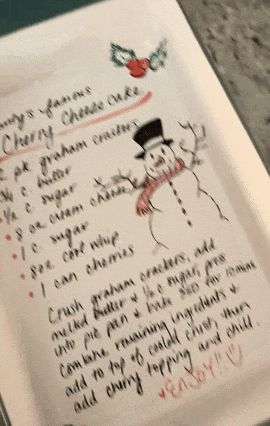 famous
Cherry Cheesecake
pk graham crackers
c. butter
c. sugar
8 oz cream cheese
1 c. sugar
8oz cool whip
1 can cherries
Crush graham crackers, add
melted butter & 1/2 c sugar, press
into pie pan & bake 350 for 10 mins
combine remaining ingredients &
add to top of cooled crust, then
add cherry topping and chill.
ENJOY!!